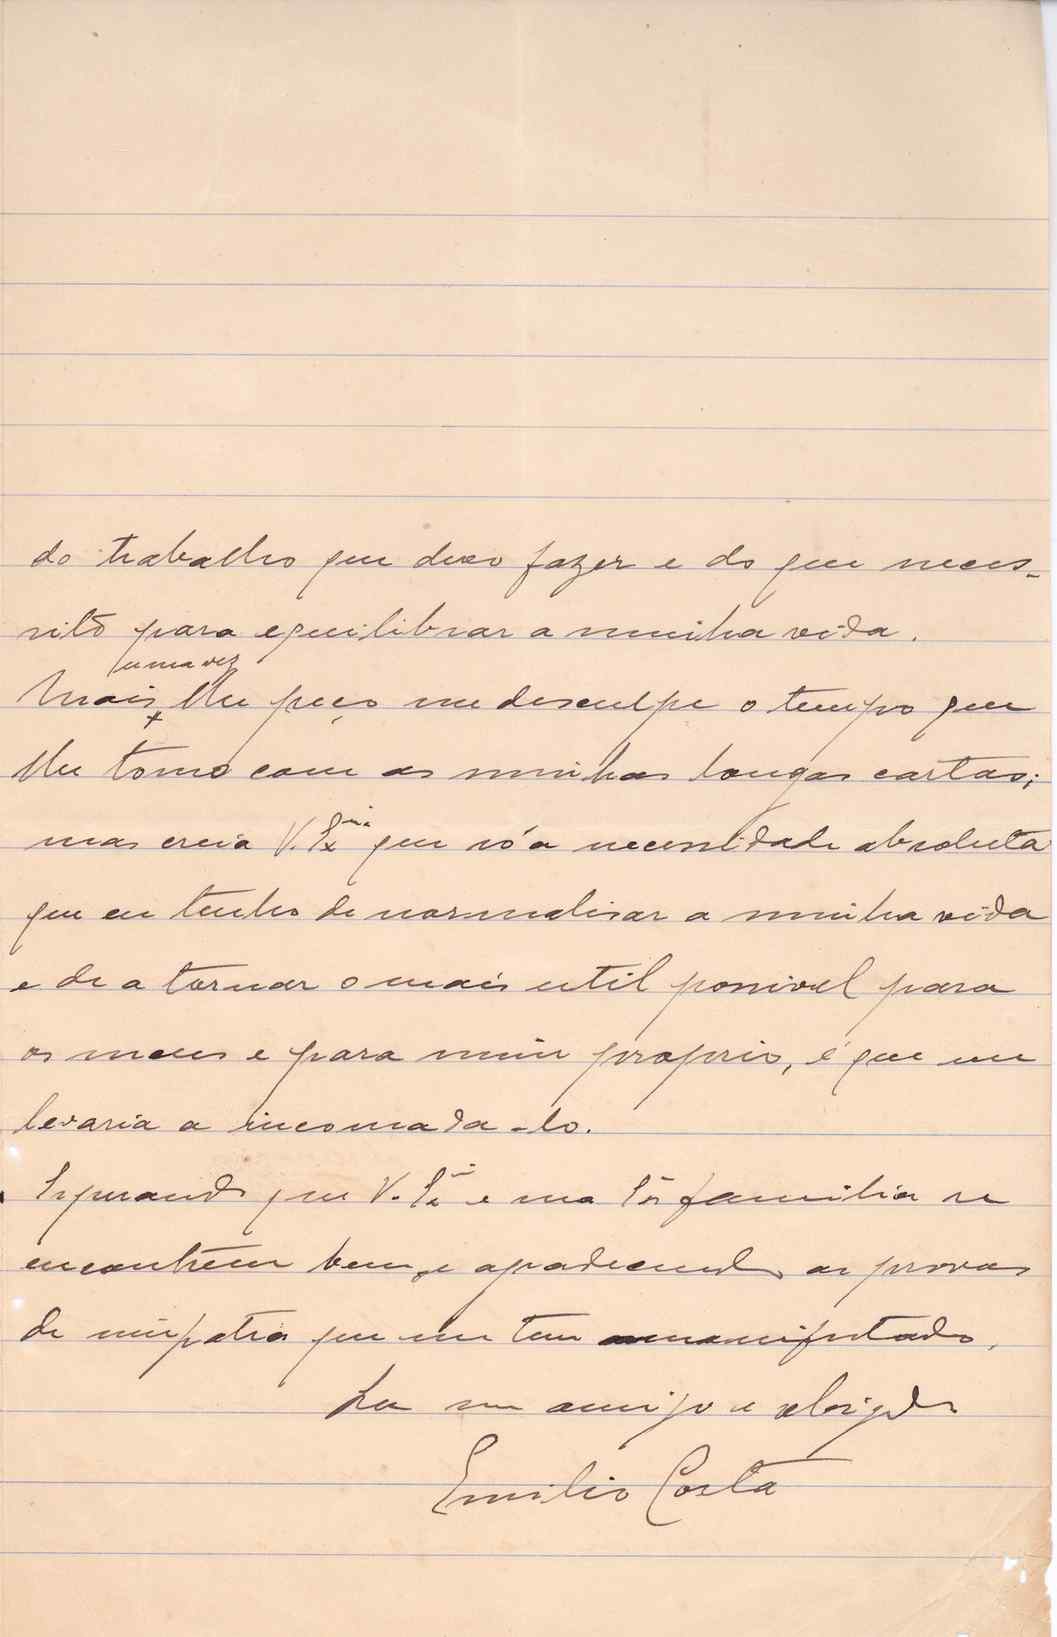 do trabalho que devo fazer e do que neces-
sito para equilibrar a minha vida.
uma vez
Mais lhe peço me desculpe o tempo que
lhe tomo com as minhas longas cartas;
mas creia V. Exª que só a necessidade absoluta
que eu tenho de normalisar a minha vida
e de a tornar o mais util possivel para
os meus e para mim proprio, é que me
levaria a incomoda-lo.
Esperando que V. Exª e sua Exª familia se
encontrem bem, e agradecendo as provas
de simpatia que me tem manifestado,
seu amigo e obrigado
Emilio Costa